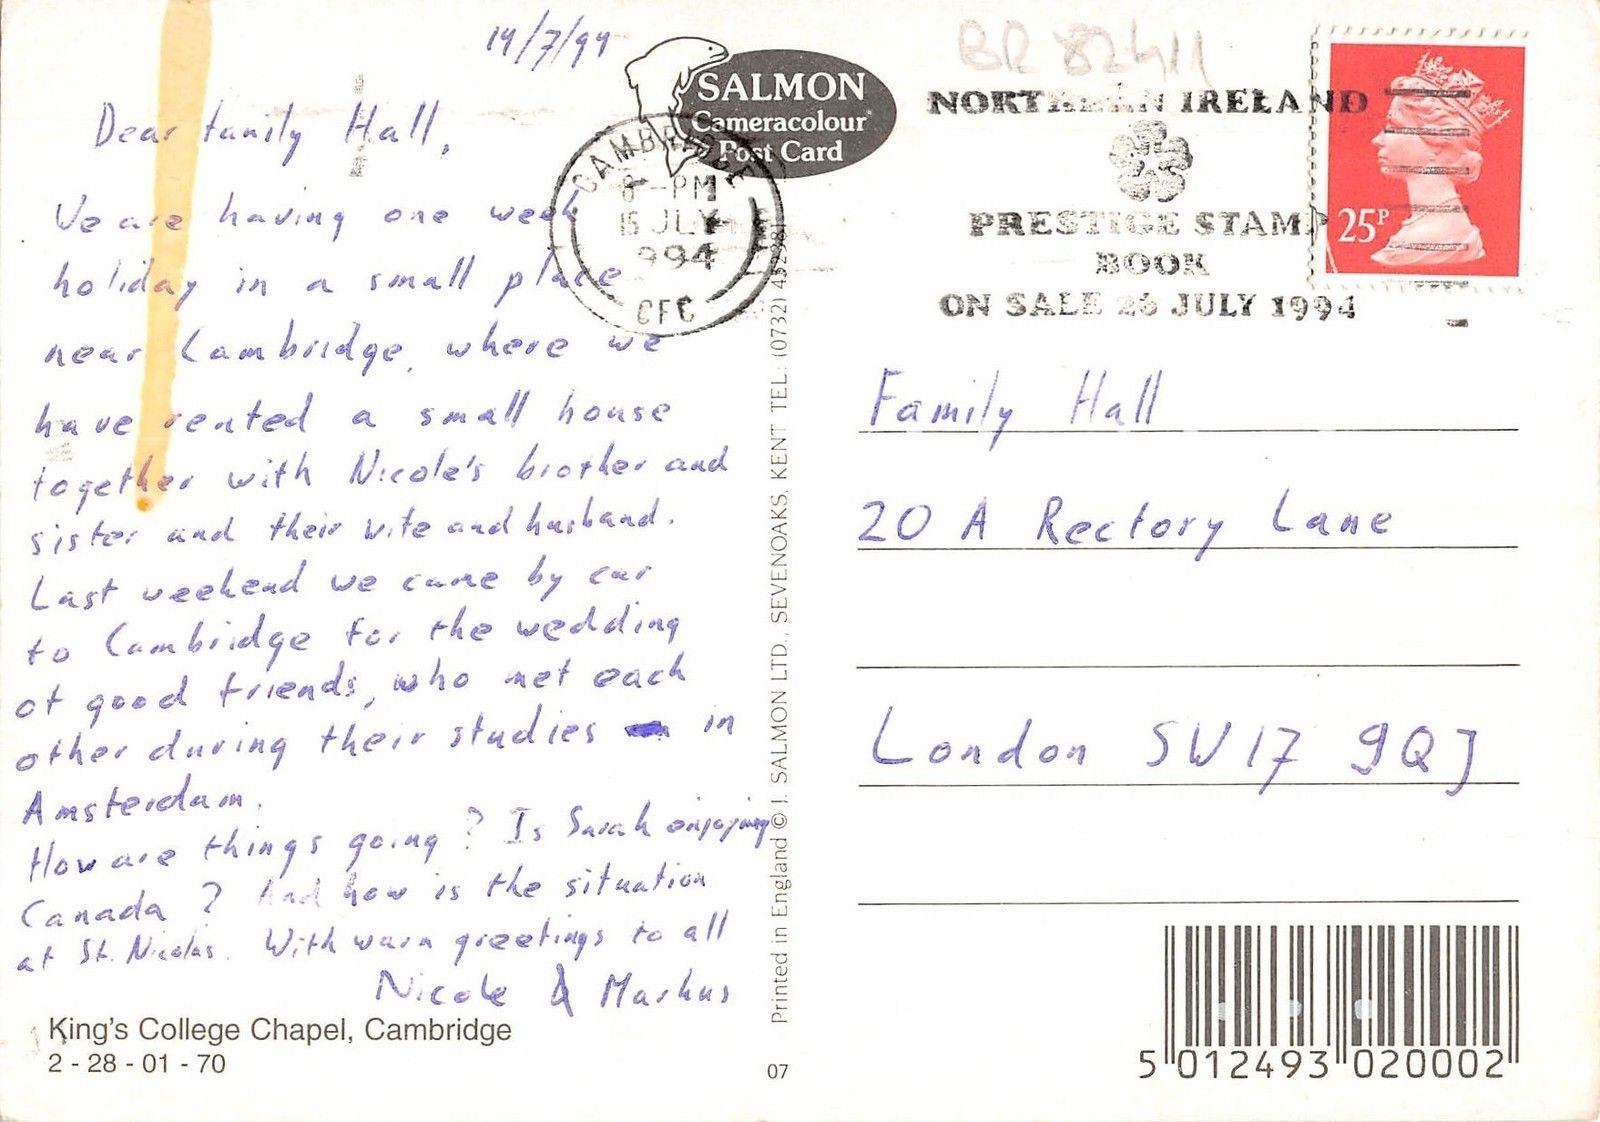 14/7/94
Dear family Hall,
We are having one week
holiday in a small place
near Cambridge, where we
have rented a small house
together with Nicole's brother and
sister and their wife and husband.
Last weekend we came by car
to Cambridge for the wedding
of good friends, who met each
other during their studies in
Amsterdam.
How are things going? Is Sarah enjoying
Canada? And how is the situation
at St. Nicolas. With warm greetings to all
Nicole & Markus
King's College Chapel, Cambridge
2 - 28 - 01 - 70
SALMON
Cameracolour
Post Card
CAMBRIDGE
8 - PM
15 JULY
1994
CFC
Printed in England © J. SALMON LTD., SEVENOAKS, KENT TEL: (0732) 452381
07
BR 82411
NORTHERN IRELAND
PRESTIGE STAMP
BOOK
ON SALE 26 JULY 1994
25P
Family Hall
20 A Rectory Lane
London SW17 9QJ
5 012493 020002